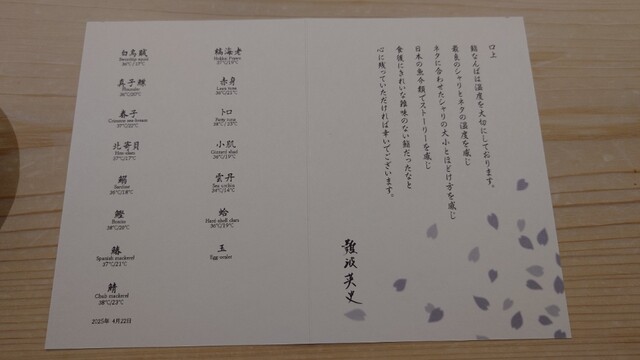 口上
鮨なんばは温度を大切にしております。
最良のシャリとネタの温度を感じ
ネタに合わせたシャリの大小とほどけ方を感じ
日本の魚介類でストーリーを感じ
食後にきれいな雑味のない鮨だったなと
心に残っていただければ幸いでございます。
難波英史
白烏賊
36℃/17℃
真子鰈
Flounder
36℃/20℃
春子
37℃/22℃
北寄貝
37℃/17℃
鰯
Sardine
36℃/18℃
鰹
Bonito
38℃/20℃
鰆
Spanish mackerel
37℃/21℃
鯖
Chub mackerel
38℃/23℃
縞海老
37℃/19℃
赤身
Lean tuna
36℃/21℃
トロ
Fatty tuna
38℃/23℃
小肌
Gizzard shad
38℃/19℃
雲丹
Sea urchin
34℃/14℃
蛤
Hard shell clam
36℃/19℃
玉
Egg omlet
2025年 4月22日